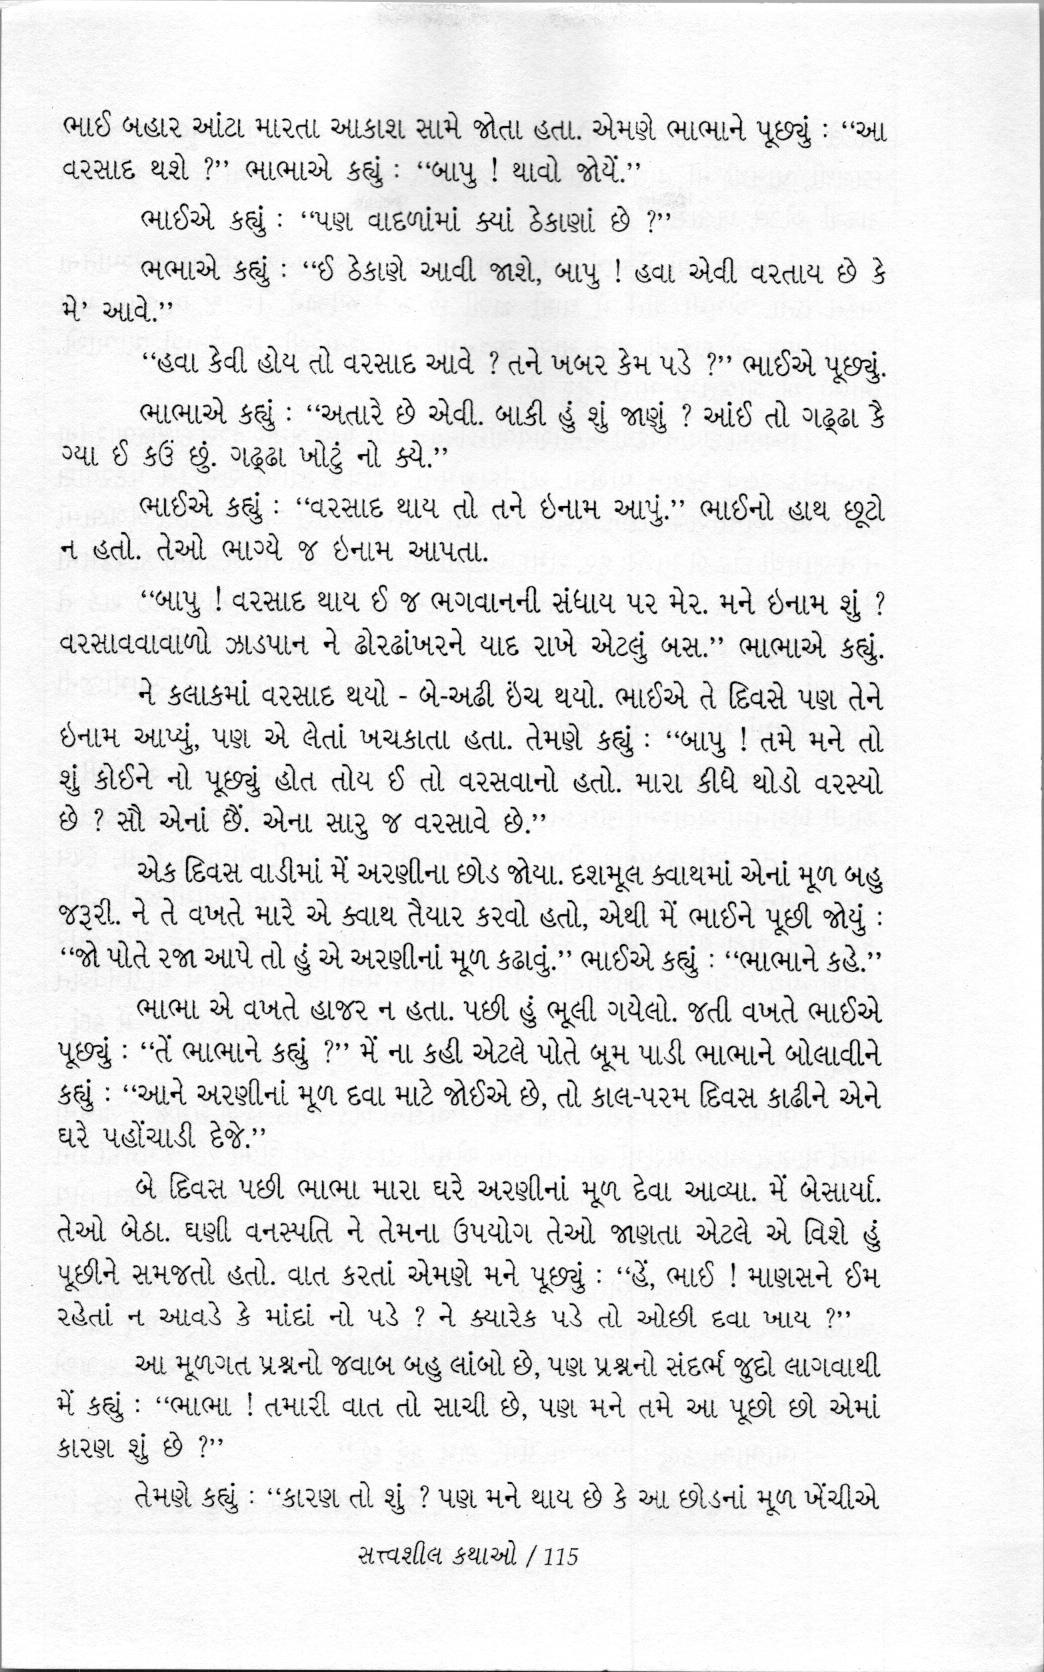 ભાઈ બહાર આંટા મારતા આકાશ સામે જોતા હતા. એમણે ભાભાને પૂછ્યું : “આ
વરસાદ થશે ?” ભાભાએ કહ્યું : “બાપુ ! થાવો જોયેં.”
ભાઈએ કહ્યું : “પણ વાદળાંમાં ક્યાં ઠેકાણાં છે ?”
ભભાએ કહ્યું : “ઈ ઠેકાણે આવી જાશે, બાપુ ! હવા એવી વરતાય છે કે
મે’ આવે.”
“હવા કેવી હોય તો વરસાદ આવે ? તને ખબર કેમ પડે ?” ભાઈએ પૂછ્યું.
ભાભાએ કહ્યું : “અતારે છે એવી. બાકી હું શું જાણું ? આંઈ તો ગઢ્ઢા કૈ
ગ્યા ઈ કઉં છું. ગઢ્ઢા ખોટું નો ક્યે.”
ભાઈએ કહ્યું : “વરસાદ થાય તો તને ઇનામ આપું.” ભાઈનો હાથ છૂટો
ન હતો. તેઓ ભાગ્યે જ ઇનામ આપતા.
“બાપુ ! વરસાદ થાય ઈ જ ભગવાનની સંધાય પર મેર. મને ઇનામ શું ?
વરસાવવાવાળો ઝાડપાન ને ઢોરઢાંખરને યાદ રાખે એટલું બસ.” ભાભાએ કહ્યું.
ને કલાકમાં વરસાદ થયો - બે-અઢી ઇંચ થયો. ભાઈએ તે દિવસે પણ તેને
ઇનામ આપ્યું, પણ એ લેતાં ખચકાતા હતા. તેમણે કહ્યું : “બાપુ ! તમે મને તો
શું કોઈને નો પૂછ્યું હોત તોય ઈ તો વરસવાનો હતો. મારા કીધે થોડો વરસ્યો
છે ? સૌ એનાં છૈં. એના સારુ જ વરસાવે છે.”
એક દિવસ વાડીમાં મેં અરણીના છોડ જોયા. દશમૂલ ક્વાથમાં એનાં મૂળ બહુ
જરૂરી. ને તે વખતે મારે એ ક્વાથ તૈયાર કરવો હતો, એથી મેં ભાઈને પૂછી જોયું :
“જો પોતે રજા આપે તો હું એ અરણીનાં મૂળ કઢાવું.” ભાઈએ કહ્યું : “ભાભાને કહે.”
ભાભા એ વખતે હાજર ન હતા. પછી હું ભૂલી ગયેલો. જતી વખતે ભાઈએ
પૂછ્યું : “તેં ભાભાને કહ્યું ?” મેં ના કહી એટલે પોતે બૂમ પાડી ભાભાને બોલાવીને
કહ્યું : “આને અરણીનાં મૂળ દવા માટે જોઈએ છે, તો કાલ-પરમ દિવસ કાઢીને એને
ઘરે પહોંચાડી દેજે.”
બે દિવસ પછી ભાભા મારા ઘરે અરણીનાં મૂળ દેવા આવ્યા. મેં બેસાર્યા.
તેઓ બેઠા. ઘણી વનસ્પતિ ને તેમના ઉપયોગ તેઓ જાણતા એટલે એ વિશે હું
પૂછીને સમજતો હતો. વાત કરતાં એમણે મને પૂછ્યું : “હેં, ભાઈ ! માણસને ઈમ
રહેતાં ન આવડે કે માંદાં નો પડે ? ને ક્યારેક પડે તો ઓછી દવા ખાય ?”
આ મૂળગત પ્રશ્નનો જવાબ બહુ લાંબો છે, પણ પ્રશ્નનો સંદર્ભ જુદો લાગવાથી
મેં કહ્યું : “ભાભા ! તમારી વાત તો સાચી છે, પણ મને તમે આ પૂછો છો એમાં
કારણ શું છે ?”
તેમણે કહ્યું : “કારણ તો શું ? પણ મને થાય છે કે આ છોડનાં મૂળ ખેંચીએ
સત્ત્વશીલ કથાઓ / 115